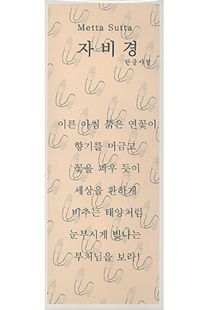 Metta Sutta
자비경
한글사경
이른 아침 붉은 연꽃이
향기를 머금고
꽃을 피우듯이
세상을 환하게
비추는 태양처럼
눈부시게 빛나는
부처님을 보라!